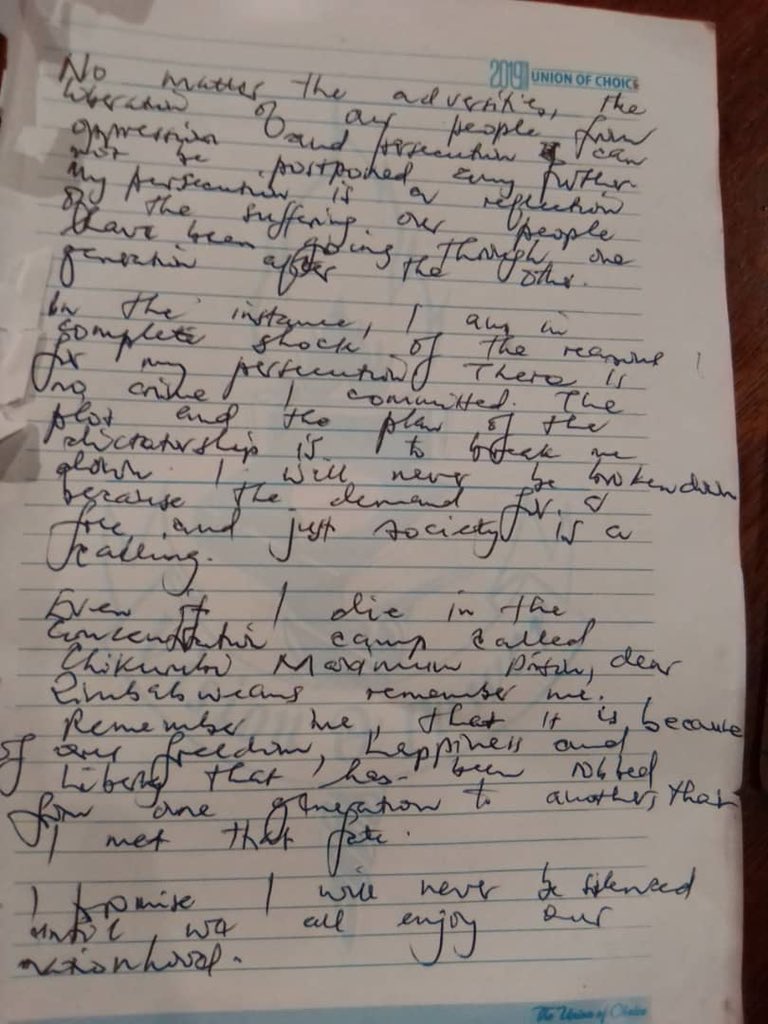 2019 UNION OF CHOICE
No matter the adversities, the
liberation of our people from
oppression and persecution can
not be postponed any further.
My persecution is a reflection
of the suffering our people
have been going through one
generation after the other.
In the instance, I am in
complete shock of the reasons
for my persecution. There is
no crime I committed. The
plot and the plan of the
dictatorship is to break me
down. I will never be broken down
because the demand for a
free and just society is a
calling.
Even if I die in the
concentration camp called
Chikurubi Maximum Prison, dear
Zimbabweans remember me.
Remember me, that it is because
of our freedom, happiness and
liberty that has been robbed
from one generation to another, that
I met that fate.
I promise I will never be silenced
until we all enjoy our
nationhood.
The Union of Choice